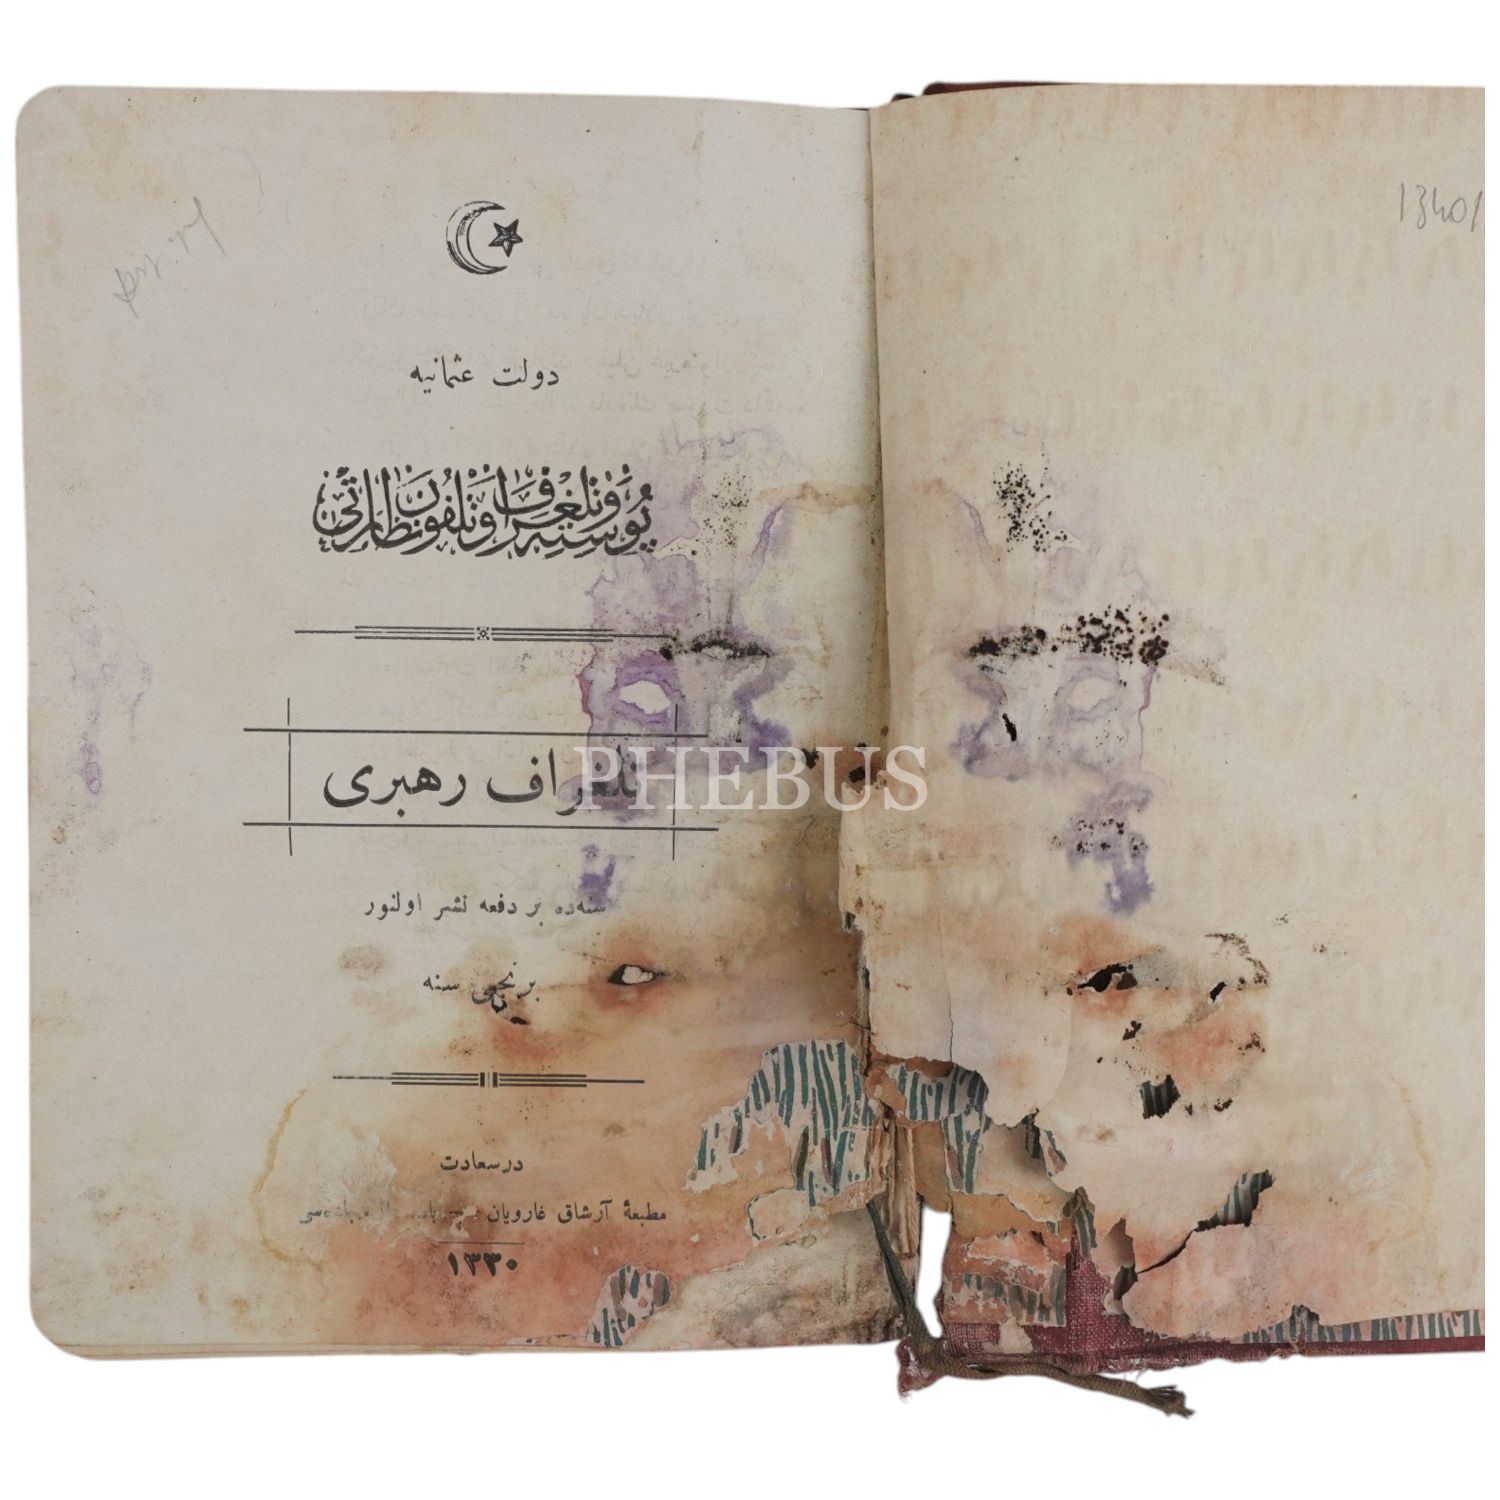 دولت عثمانیه
پوسته و تلغراف و تلفون نظارتی
تلغراف رهبری
سنه‌ده بر دفعه نشر اولنور
برنجی سنه
درسعادت
مطبعهٔ آرشاق غارویان
١٣٣٠
PHEBUS